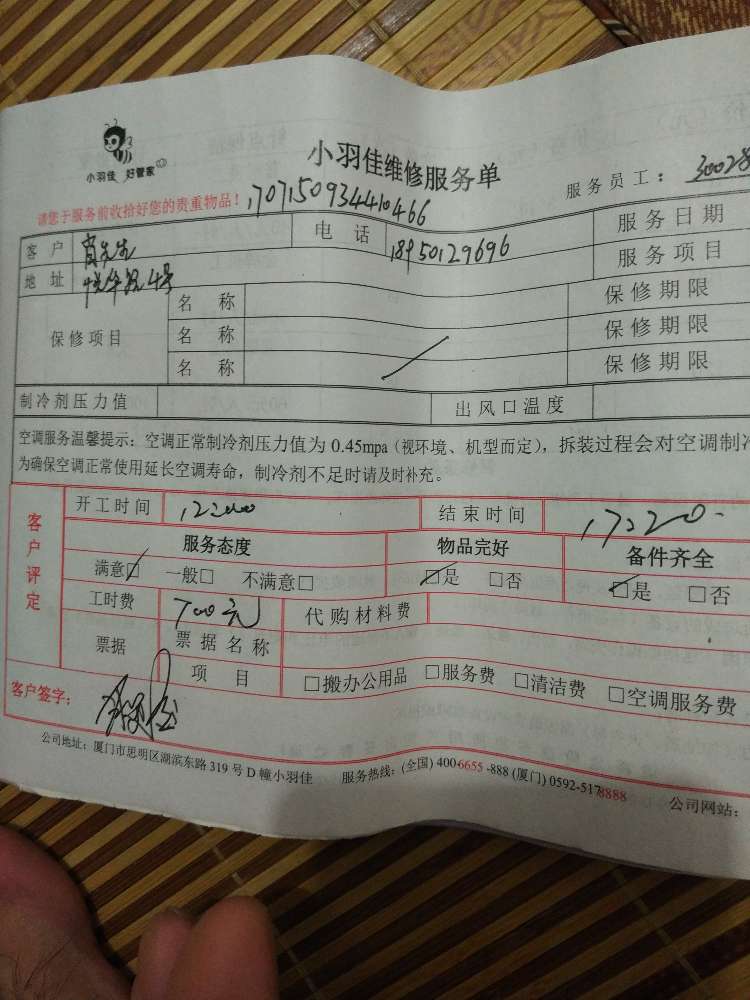 小羽佳 好管家
小羽佳维修服务单
服务员工：30028
请您于服务前收拾好您的贵重物品！1707150934410466
客户 电话 18950129696 服务日期
地址 服务项目
保修项目 名称 保修期限
名称 保修期限
名称 保修期限
制冷剂压力值 出风口温度
空调服务温馨提示：空调正常制冷剂压力值为 0.45mpa（视环境、机型而定），拆装过程会对空调制冷
为确保空调正常使用延长空调寿命，制冷剂不足时请及时补充。
客户评定
开工时间 12:00 结束时间 17:20
服务态度 物品完好 备件齐全
满意□ 一般□ 不满意□ □是 □否 □是 □否
工时费 700元 代购材料费
票据 票据名称
项目 □搬办公用品 □服务费 □清洁费 □空调服务费
客户签字：
公司地址：厦门市思明区湖滨东路 319 号 D 幢小羽佳 服务热线：(全国) 400-6655-888 (厦门) 0592-5178888 公司网站：